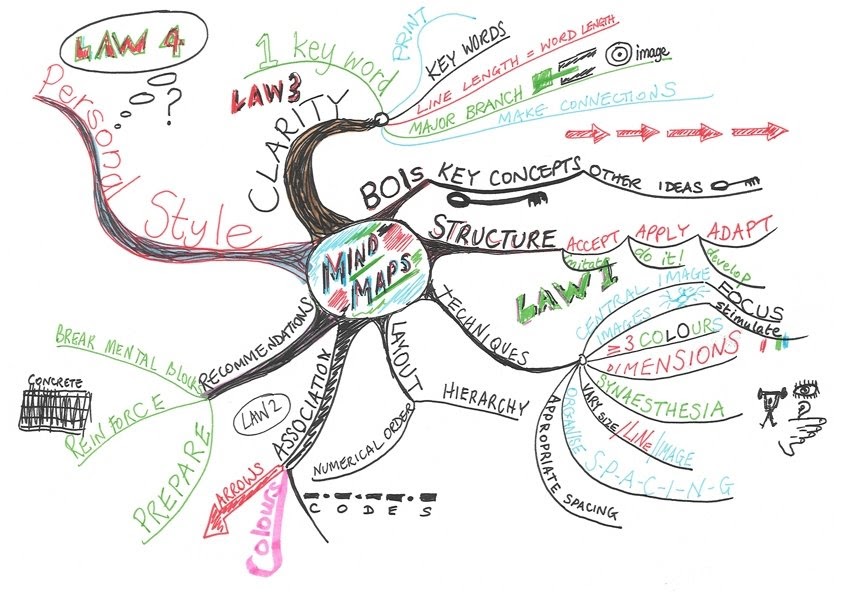 LAW 4
Personal Style
?
1 key word
LAW3
CLARITY
PRINT
KEY WORDS
LINE LENGTH = WORD LENGTH
MAJOR BRANCH
image
MAKE CONNECTIONS
BOIs
KEY CONCEPTS
OTHER IDEAS
MIND
MAPS
STRUCTURE
ACCEPT
imitate
APPLY
do it!
ADAPT
develop
LAW 1
TECHNIQUES
CENTRAL IMAGE
IMAGES
FOCUS
stimulate
≥3 COLOURS
DIMENSIONS
SYNAESTHESIA
VARY SIZE/LINE/IMAGE
ORGANISE S-P-A-C-I-N-G
APPROPRIATE SPACING
LAYOUT
HIERARCHY
NUMERICAL ORDER
ASSOCIATION
LAW2
ARROWS
Colours
CODES
RECOMMENDATIONS
BREAK MENTAL Blocks
CONCRETE
REINFORCE
PREPARE